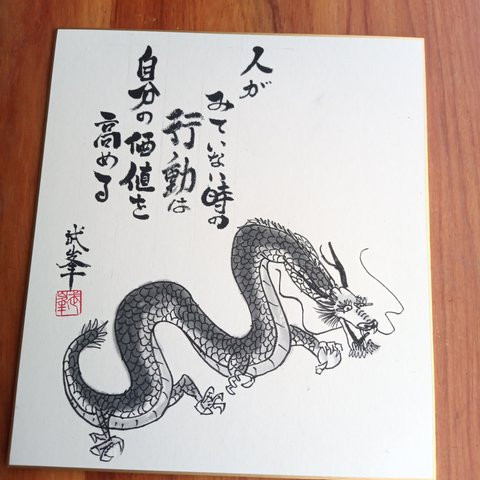 人が
みていない時の
行動は
自分の価値を
高める
武峯